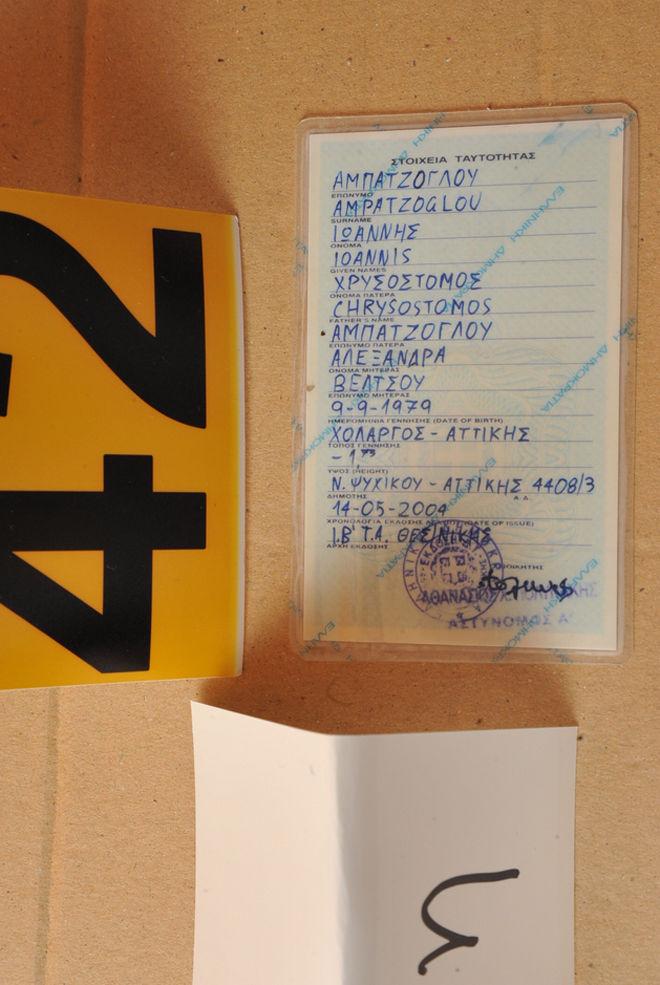 ΣΤΟΙΧΕΙΑ ΤΑΥΤΟΤΗΤΑΣ
ΑΜΠΑΤΖΟΓΛΟΥ
ΕΠΩΝΥΜΟ
AMPATZOGLOU
SURNAME
ΙΩΑΝΝΗΣ
ΟΝΟΜΑ
IOANNIS
GIVEN NAMES
ΧΡΥΣΟΣΤΟΜΟΣ
ΟΝΟΜΑ ΠΑΤΕΡΑ
CHRYSOSTOMOS
FATHER'S NAME
ΑΜΠΑΤΖΟΓΛΟΥ
ΕΠΩΝΥΜΟ ΠΑΤΕΡΑ
ΑΛΕΞΑΝΔΡΑ
ΟΝΟΜΑ ΜΗΤΕΡΑΣ
ΒΕΛΤΣΟΥ
ΕΠΩΝΥΜΟ ΜΗΤΕΡΑΣ
9-9-1979
ΗΜΕΡΟΜΗΝΙΑ ΓΕΝΝΗΣΗΣ (DATE OF BIRTH)
ΧΟΛΑΡΓΟΣ - ΑΤΤΙΚΗΣ
ΤΟΠΟΣ ΓΕΝΝΗΣΗΣ
- 1,75
ΥΨΟΣ (HEIGHT)
Ν. ΨΥΧΙΚΟΥ - ΑΤΤΙΚΗΣ 4408/3
ΔΗΜΟΤΗΣ Α.Δ.
14-05-2004
ΧΡΟΝΟΛΟΓΙΑ ΕΚΔΟΣΗΣ (DATE OF ISSUE)
ΙΒ' Τ.Α. ΘΕΣ/ΝΙΚΗΣ
ΑΡΧΗ ΕΚΔΟΣΗΣ
ΔΙΟΙΚΗΤΗΣ
ΑΣΤΥΝΟΜΟΣ Α'
42